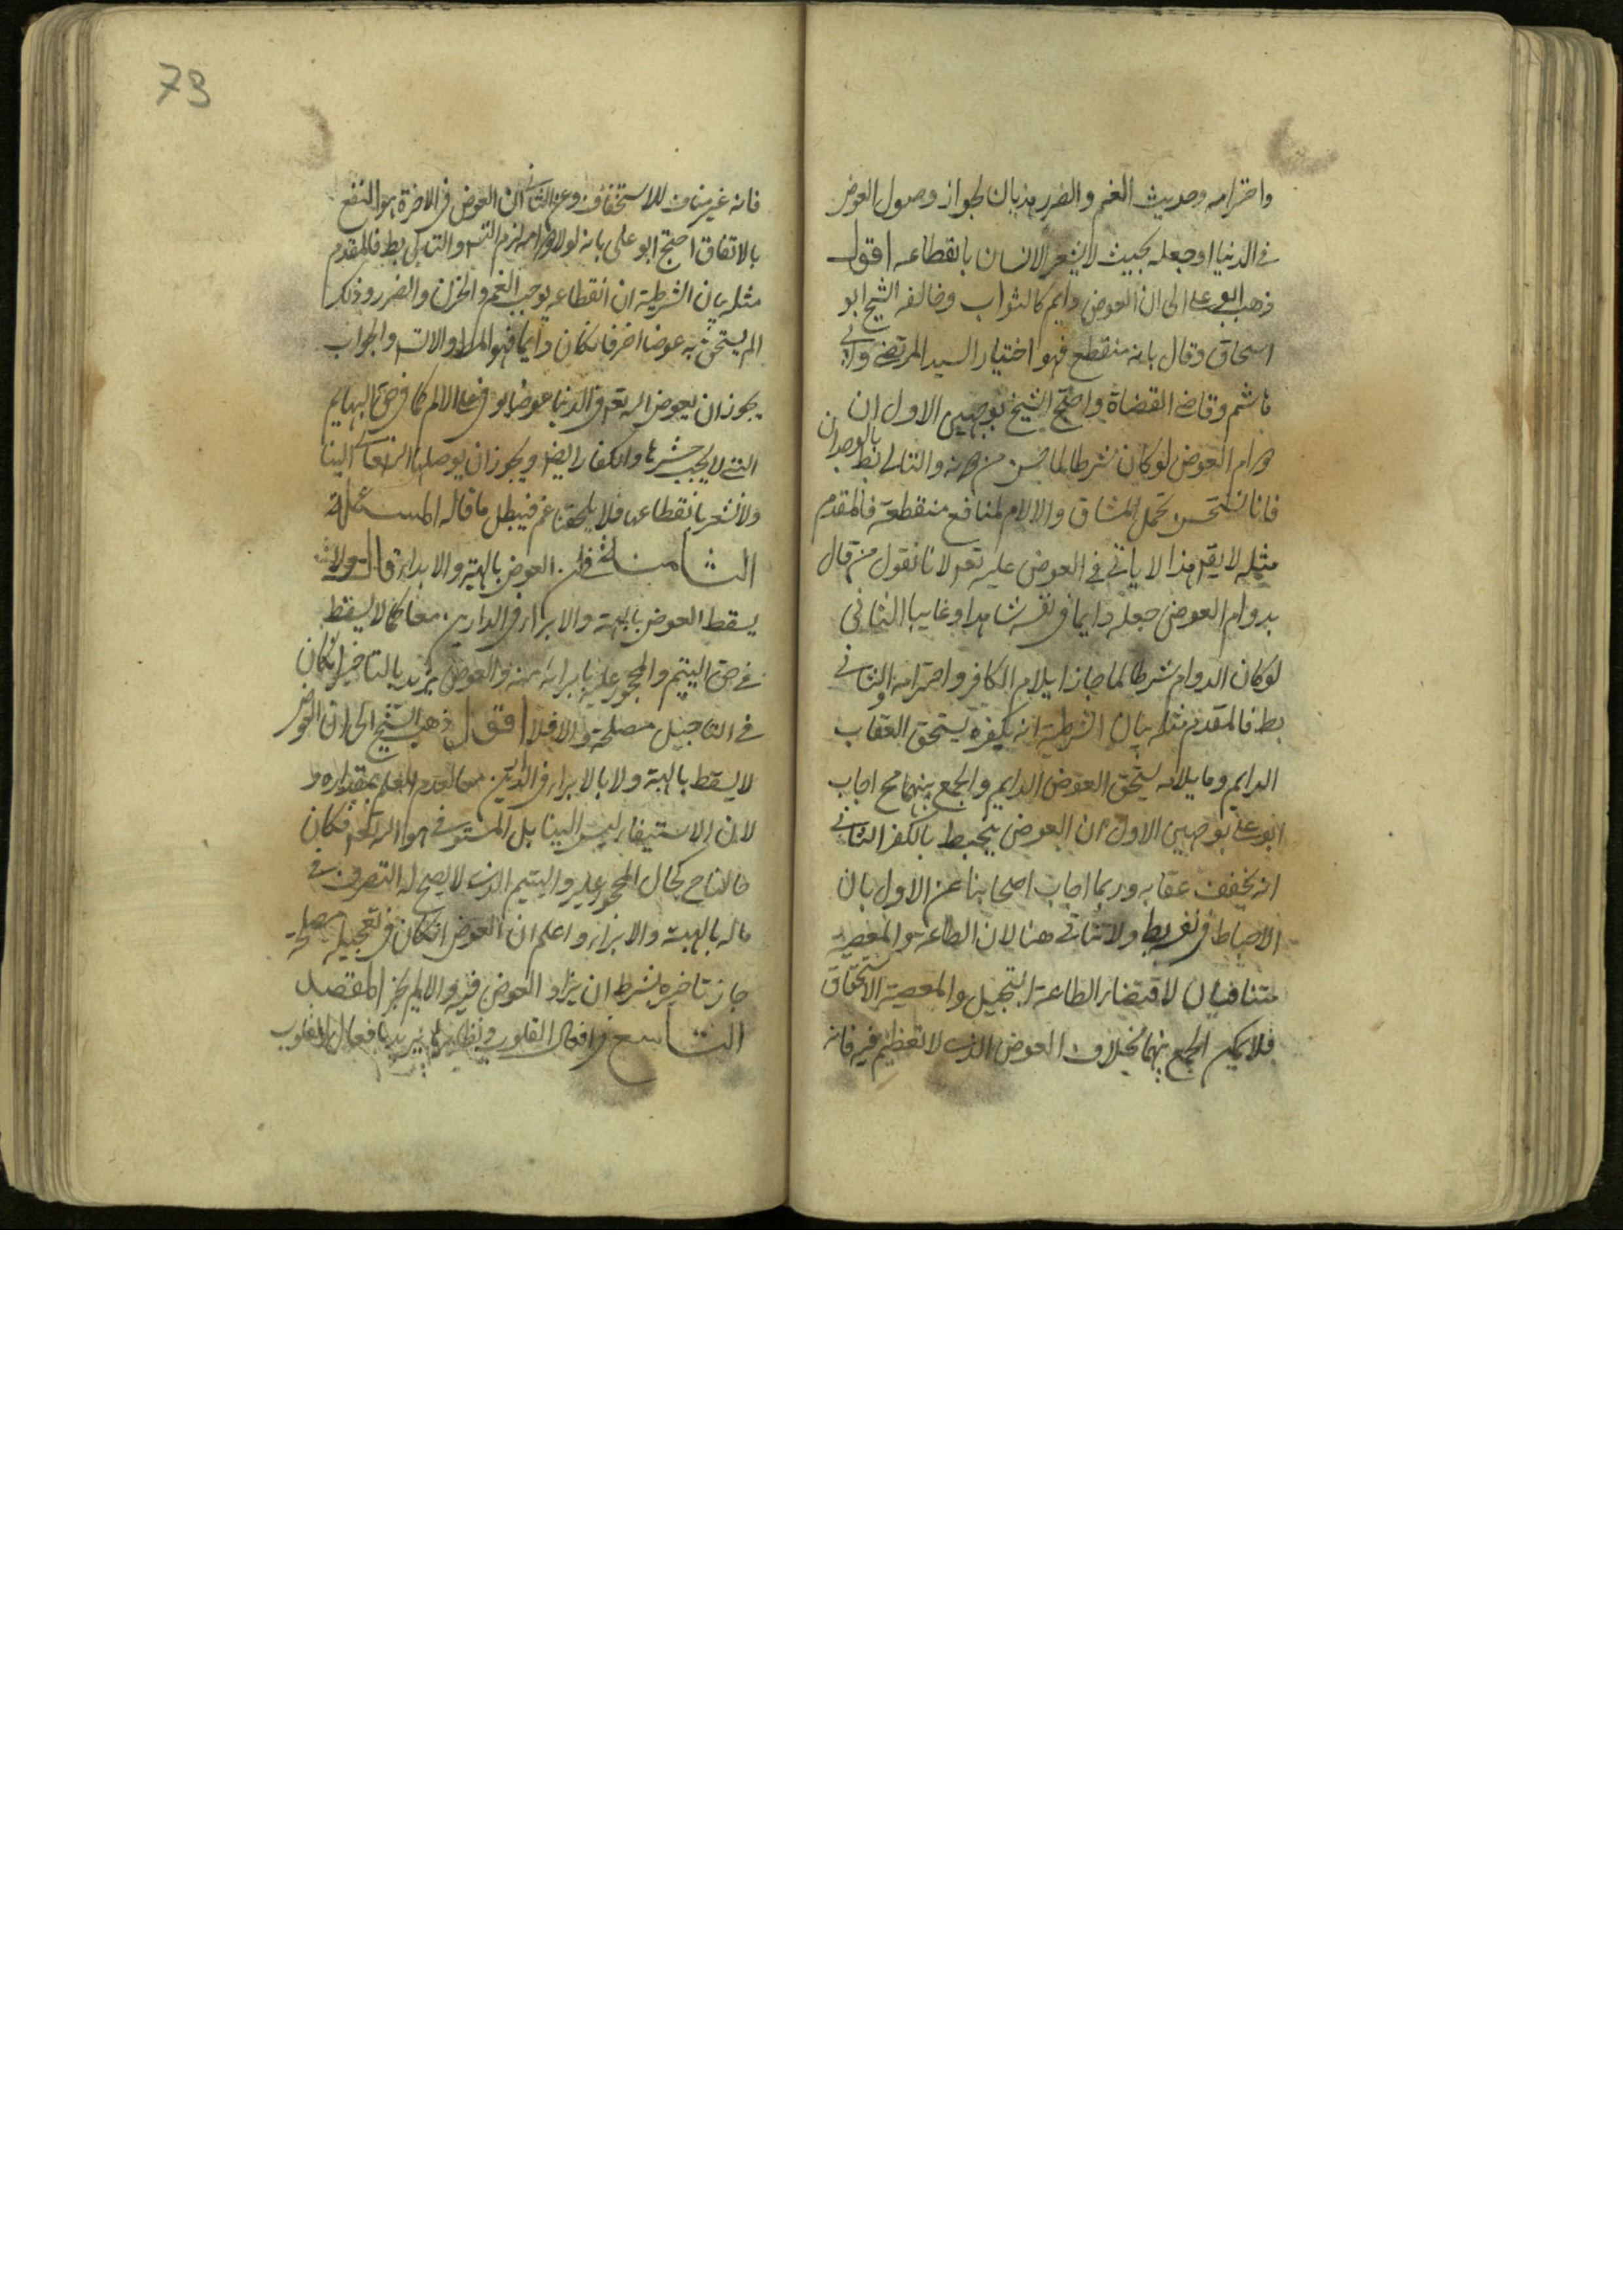 واخترامه وحديث الغم والضرر هذيان لجواز وصول العوض
في الدنيا او جعله بحيث لا يشعر الانسان بانقطاعه اقول
ذهب ابو علي الى ان العوض دايم كالثواب وخالفه الشيخ ابو
اسحاق وقال بانه منقطع فهو اختيار السيد المرتضى وابي
هاشم وقاضي القضاة واحتج الشيخ بوجهين الاول ان
دوام العوض لو كان شرطا لما حسن من دونه والتالي بط بالوجدان
فانا نستحسن تحمل المشاق والالام لمنافع منقطعة فالمقدم
مثله لا يقه هذا لا ياتي في العوض عليه تعه لانا نقول من قال
بدوام العوض جعله دايما في نفسه شاهدا وغايبا الثاني
لو كان الدوام شرطا لما جاز ايلام الكافر واخترامه والتالي
بط فالمقدم مثله بيان الشرطية انه بكفره يستحق العقاب
الدايم وبايلامه يستحق العوض الدايم والجمع بينهما مح اجاب
ابو علي بوجهين الاول ان العوض ينحبط بالكفر الثاني
انه يخفف عقابه وربما اجاب اصحابنا عن الاول بان
الاحباط ولا تتاتى هنا لان الطاعة والمعصية
متنافيان لاقتضاء الطاعة التبجيل والمعصية الاستحقاق
فلا يمكن الجمع بينهما بخلاف العوض الذي لا تعظيم فيه فانه
73
فانه غير مناف للاستخفاف وعن الثاني ان العوض في الاخرة هو النفع
بالاتفاق احتج ابو علي بانه لولا دوامه لزم التس والتالي بط فالمقدم
مثله بيان الشرطية ان انقطاعه يوجب الغم والحزن والضرر وذلك
الم يستحق به عوضا اخر فان كان دايما فهو المراد والا تس والجواب
يجوز ان يعوض الله تعه في الدنيا عوضا يوفي على الالم كما في حق البهايم
التي لا يجب حشرها والكفار ايضا ويجوز ان يوصله الله تعالى الينا
ولا نشعر بانقطاعه فلا يلحقنا غم فيبطل ما قاله المسئلة
الثامنة في ان العوض بالهبة والابراء قال ولا
يسقط العوض بالهبة والابراء في الدارين معا كما لا يسقط
في حق اليتيم والمحجور عليه بابرائه منه والعوض يزيد بالتاخير ان كان
في التاجيل مصلحة والا فلا اقول ذهب الشيخ الى ان العوض
لا يسقط بالهبة ولا بالابراء في الدارين معا لعدم العلم بمقداره و
لان الاستيفاء ليس الينا بل المستوفي هو الله تعه فكان
حالنا ح كحال المحجور عليه واليتيم الذي لا يصح له التصرف في
ماله بالهبة والابراء واعلم ان العوض ان كان في تعجيله مصلحة
جاز تاخيره بشرط ان يزاد العوض فيه والا لم يجز المقصد
التاسع في افعال القلوب ونظايرها يريد بافعال القلوب